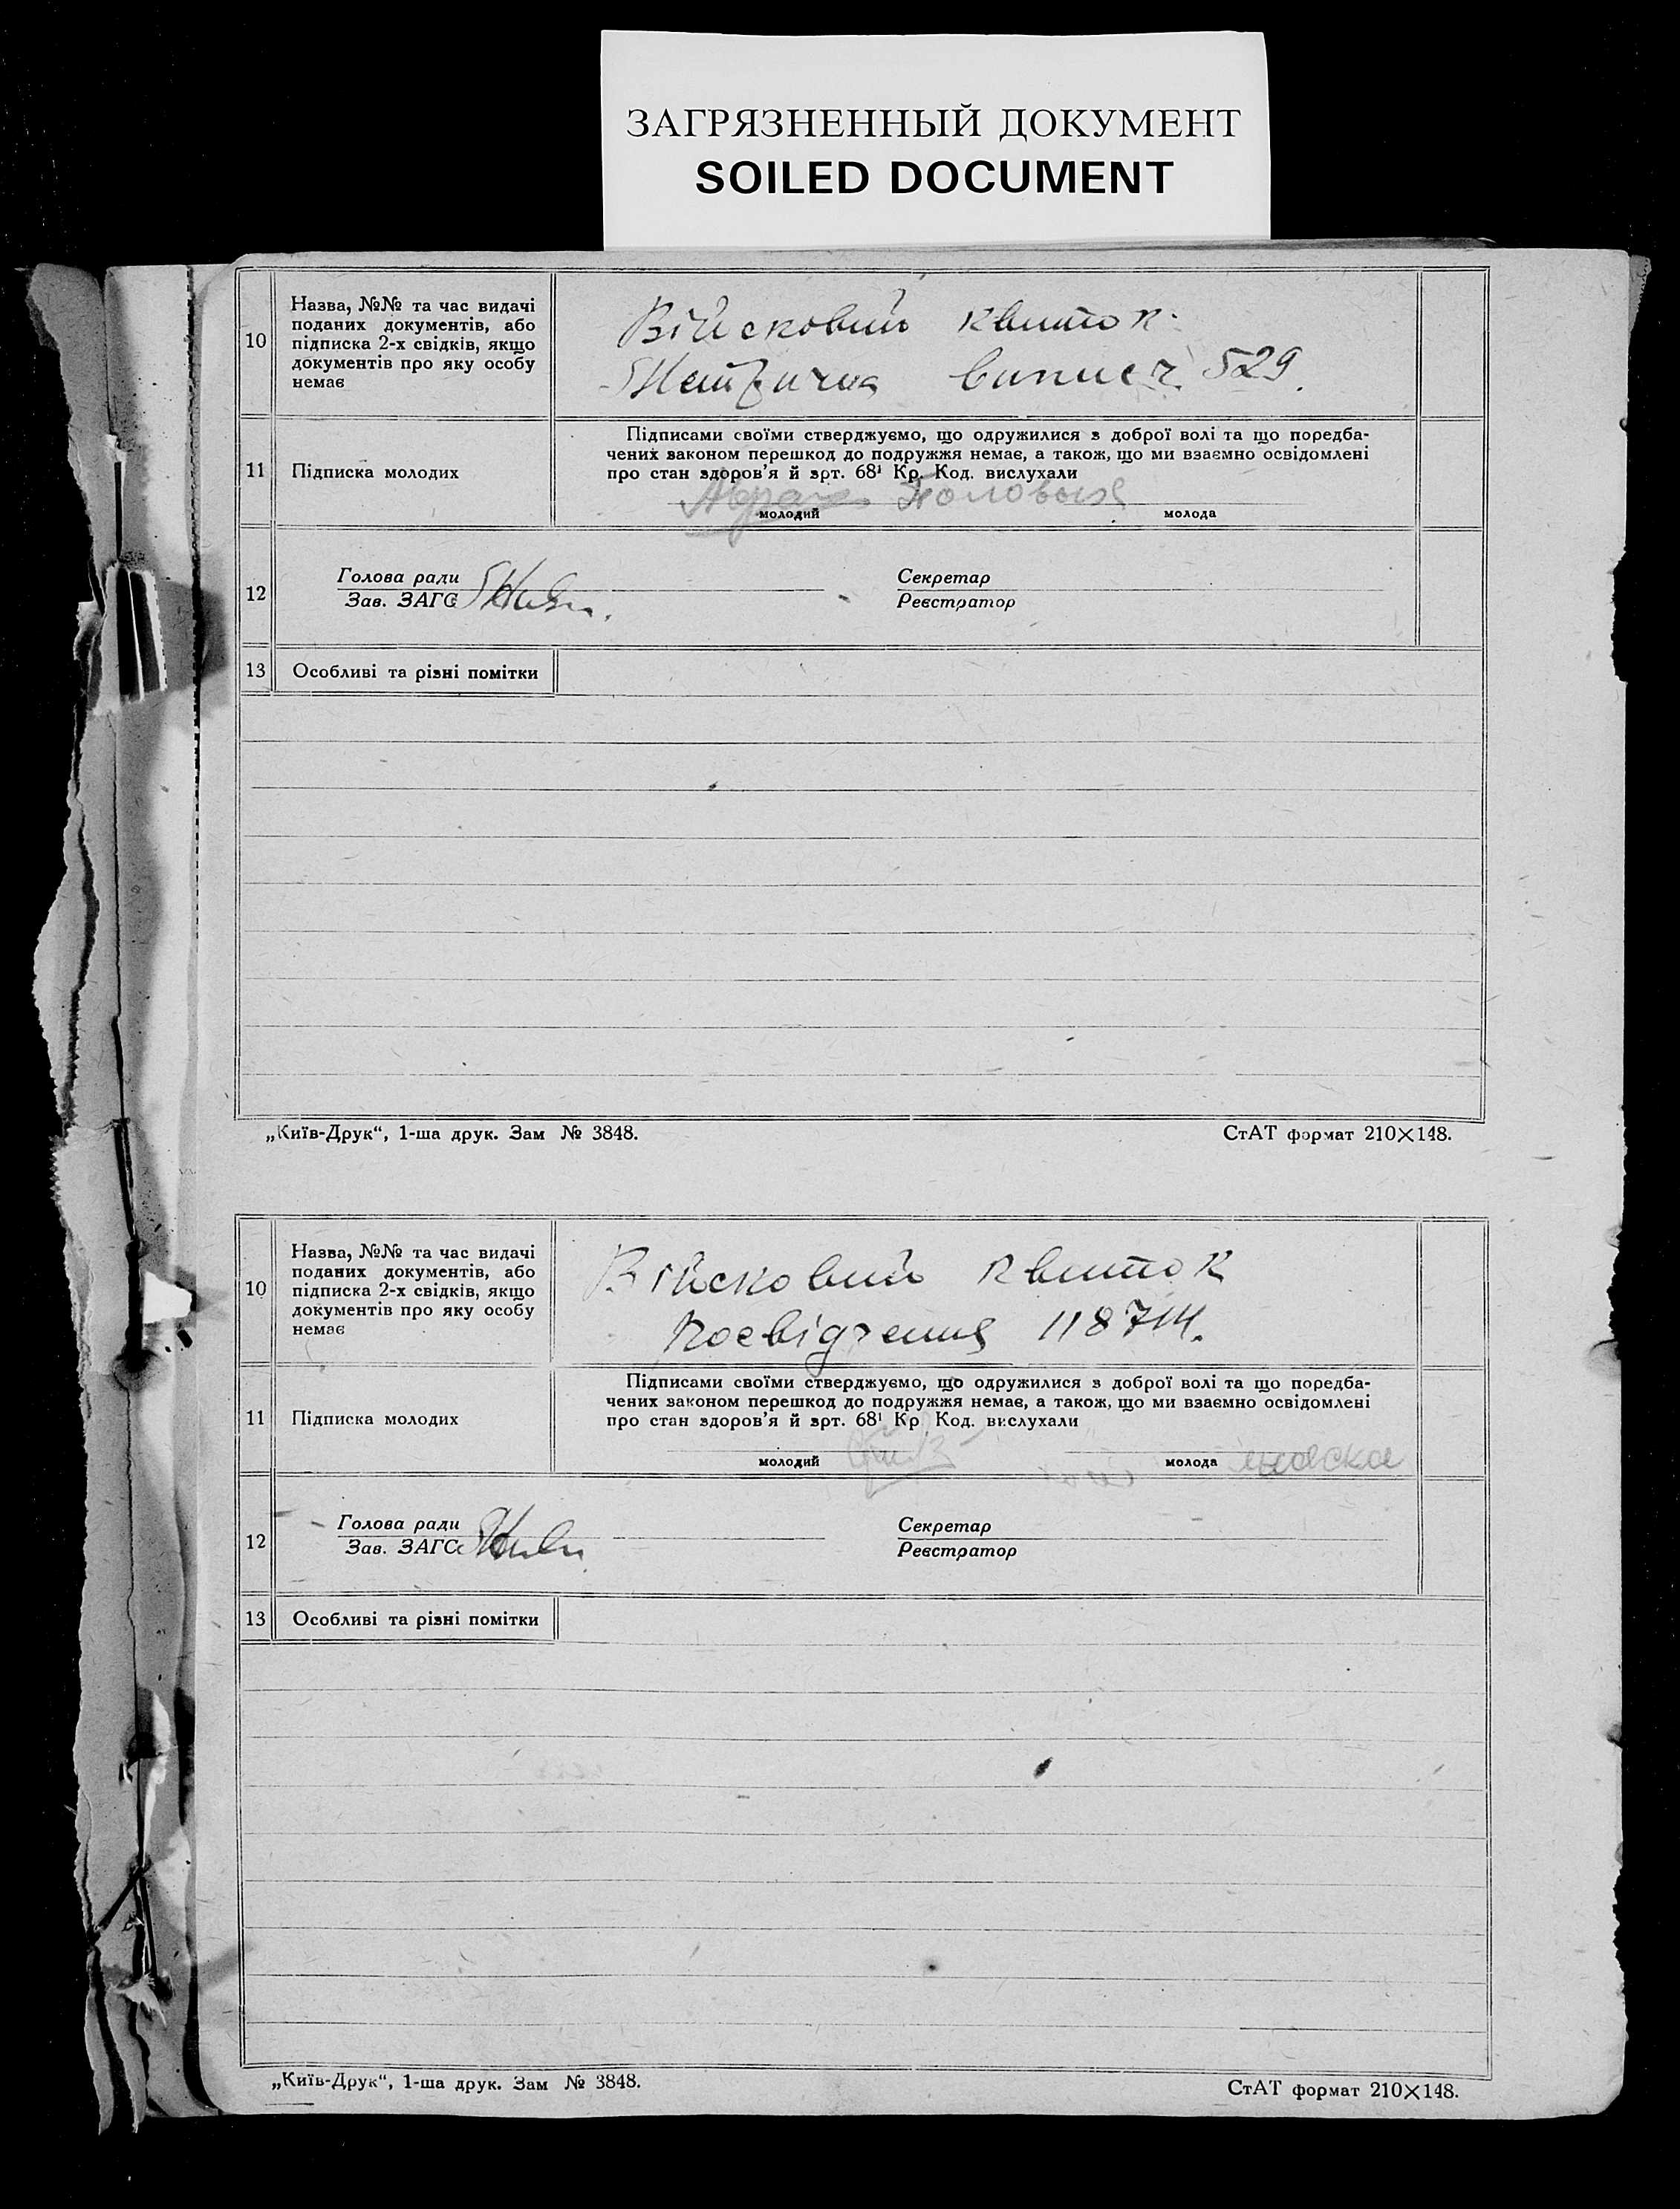 ЗАГРЯЗНЕННЫЙ ДОКУМЕНТ
SOILED DOCUMENT
10
Назва, №№ та час видачі
поданих документів, або
підписка 2-х свідків, якщо
документів про яку особу
немає
Війсковий квиток.
Метрична випис 529.
11
Підписка молодих
Підписами своїми стверджуємо, що одружилися з доброї волі та що поредба-
чених законом перешкод до подружжя немає, а також, що ми взаємно освідомлені
про стан здоров'я й арт. 68¹ Кр. Код. вислухали
молодий
молода
12
Голова ради
Зав. ЗАГС
Секретар
Реєстратор
13
Особливі та різні помітки
„Київ-Друк“, 1-ша друк. Зам № 3848.
СтАТ формат 210×148.
10
Назва, №№ та час видачі
поданих документів, або
підписка 2-х свідків, якщо
документів про яку особу
немає
Війсковий квиток
Посвідчення
11
Підписка молодих
Підписами своїми стверджуємо, що одружилися з доброї волі та що поредба-
чених законом перешкод до подружжя немає, а також, що ми взаємно освідомлені
про стан здоров'я й арт. 68¹ Кр Код. вислухали
молодий
молода
12
Голова ради
Зав. ЗАГС
Секретар
Реєстратор
13
Особливі та різні помітки
„Київ-Друк“, 1-ша друк. Зам № 3848.
СтАТ формат 210×148.